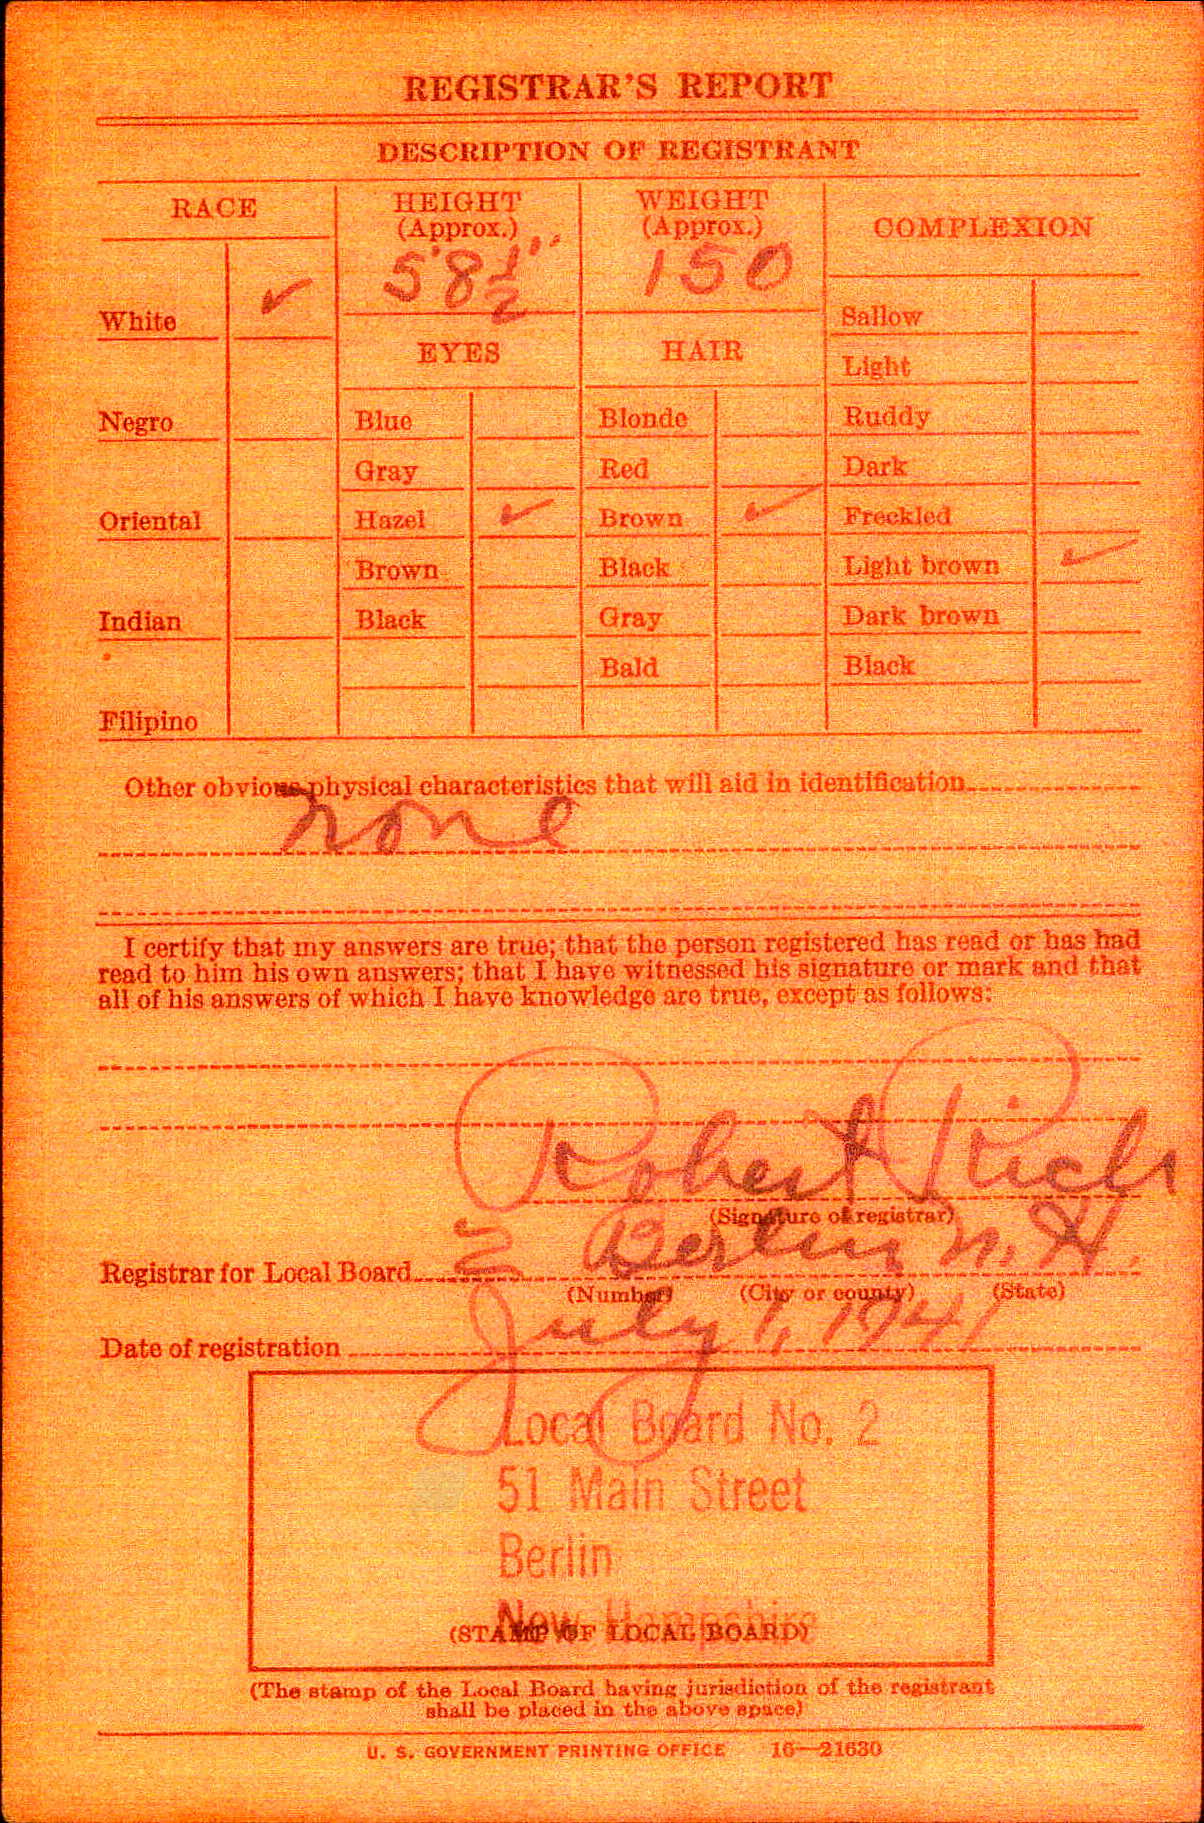 REGISTRAR'S REPORT
DESCRIPTION OF REGISTRANT
RACE
HEIGHT
(Approx.)
5'8 1/2"
WEIGHT
(Approx.)
150
COMPLEXION
White ✓
Negro
Oriental
Indian
Filipino
EYES
Blue
Gray
Hazel ✓
Brown
Black
HAIR
Blonde
Red
Brown ✓
Black
Gray
Bald
Sallow
Light
Ruddy
Dark
Freckled
Light brown ✓
Dark brown
Black
Other obvious physical characteristics that will aid in identification
none
I certify that my answers are true; that the person registered has read or has had
read to him his own answers; that I have witnessed his signature or mark and that
all of his answers of which I have knowledge are true, except as follows:
Robert Rich
(Signature of registrar)
Registrar for Local Board 2 Berlin N. H.
(Number) (City or county) (State)
Date of registration July 1, 1941
Local Board No. 2
51 Main Street
Berlin
New Hampshire
(STAMP OF LOCAL BOARD)
(The stamp of the Local Board having jurisdiction of the registrant
shall be placed in the above space)
U. S. GOVERNMENT PRINTING OFFICE 16—21630